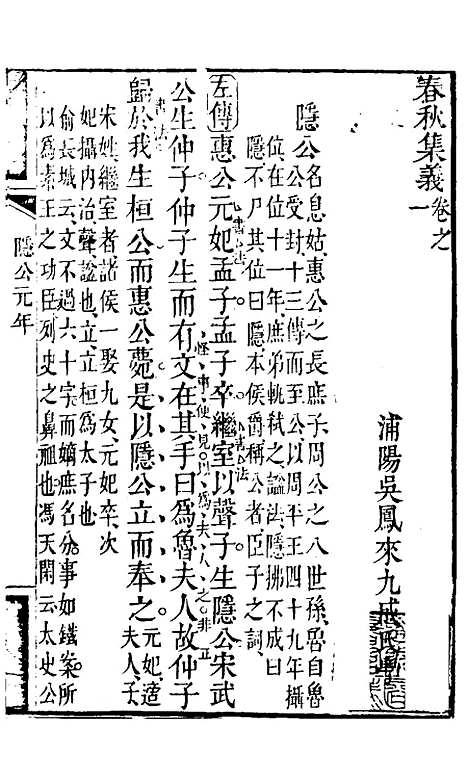 春秋集義卷之一
浦陽吳鳳來九成氏輯
隱公名息姑惠公之長庶子周公之八世孫魯自魯
公受封十三傳而至公以周平王四十九年攝
位在位十一年庶弟軌弒之諡法隱拂不成曰
隱不尸其位曰隱本侯爵稱公者臣子之詞
左傳惠公元妃孟子孟子卒繼室以聲子生隱公宋武
書法
書法
公生仲子仲子生而有文在其手曰爲魯夫人故仲子
怪事便見以爲夫人之非正
歸於我生桓公而惠公薨是以隱公立而奉之元妃適夫人子
書法
宋姓繼室者諸侯一娶九女元妃卒次
妃攝内治聲諡也立立桓爲太子也
俞長城云文不過六十字而嫡庶名分事如鐵案所
以爲素王之功臣列史之鼻祖也馮天閑云太史公
隱公元年